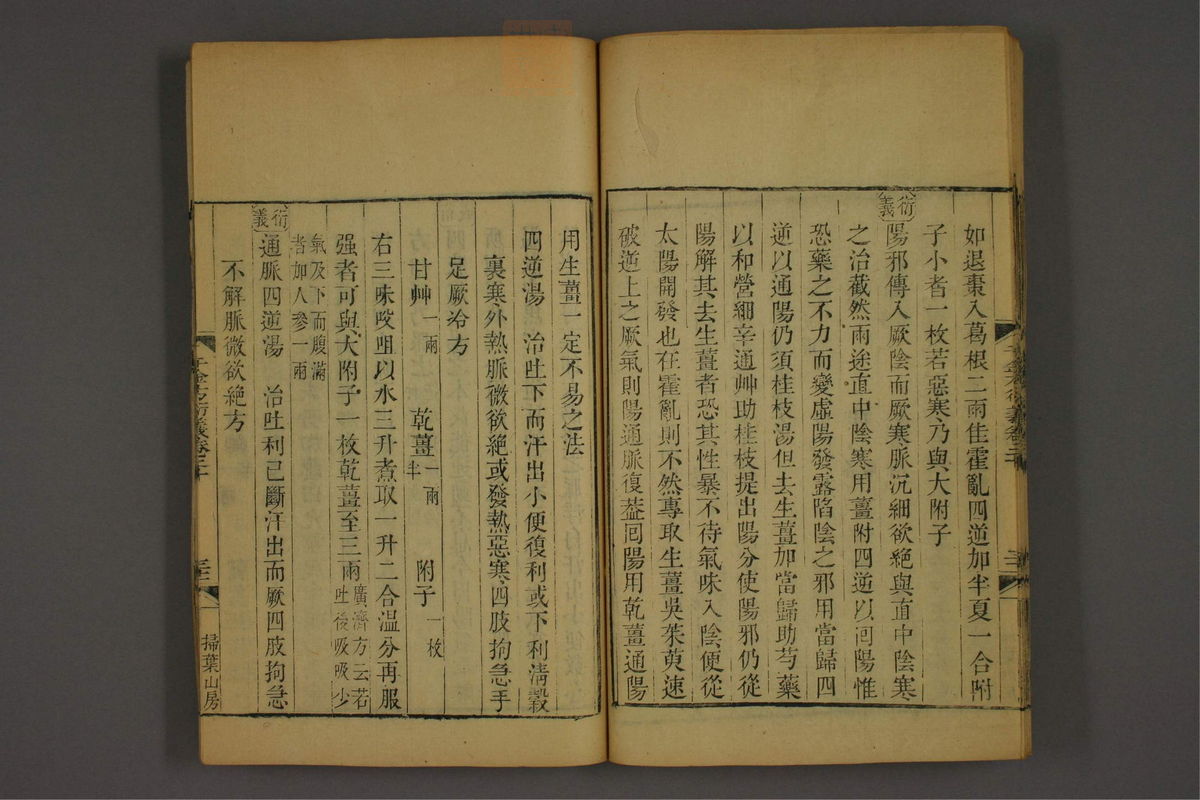 如退棗入葛根二兩佳霍亂四逆加半夏一合附
子小者一枚若惡寒乃與大附子
衍義
陽邪傳入厥陰而厥寒脈沉細欲絕與直中陰寒
之治截然兩途直中陰寒用薑附四逆以回陽惟
恐藥之不力而變虛陽發露陷陰之邪用當歸四
逆以通陽仍須桂枝湯但去生薑加當歸助芍藥
以和營細辛通艸助桂枝提出陽分使陽邪仍從
陽解其去生薑者恐其性暴不待氣味入陰便從
太陽開發也在霍亂則不然專取生薑吳茱萸速
破逆上之厥氣則陽通脈復葢囘陽用乾薑通陽
用生薑一定不易之法
四逆湯　治吐下而汗出小便復利或下利清穀
裏寒外熱脈微欲絕或發熱惡寒四肢拘急手
足厥冷方
甘艸一兩　乾薑一兩半　附子一枚
右三味㕮咀以水三升煮取一升二合温分再服
强者可與大附子一枚乾薑至三兩廣濟方云若吐後吸吸少
氣及下而腹滿者如人參一兩
衍義
通脈四逆湯　治吐利已斷汗出而厥四肢拘急
不解脈微欲絕方
千金方衍義卷二十
掃葉山房